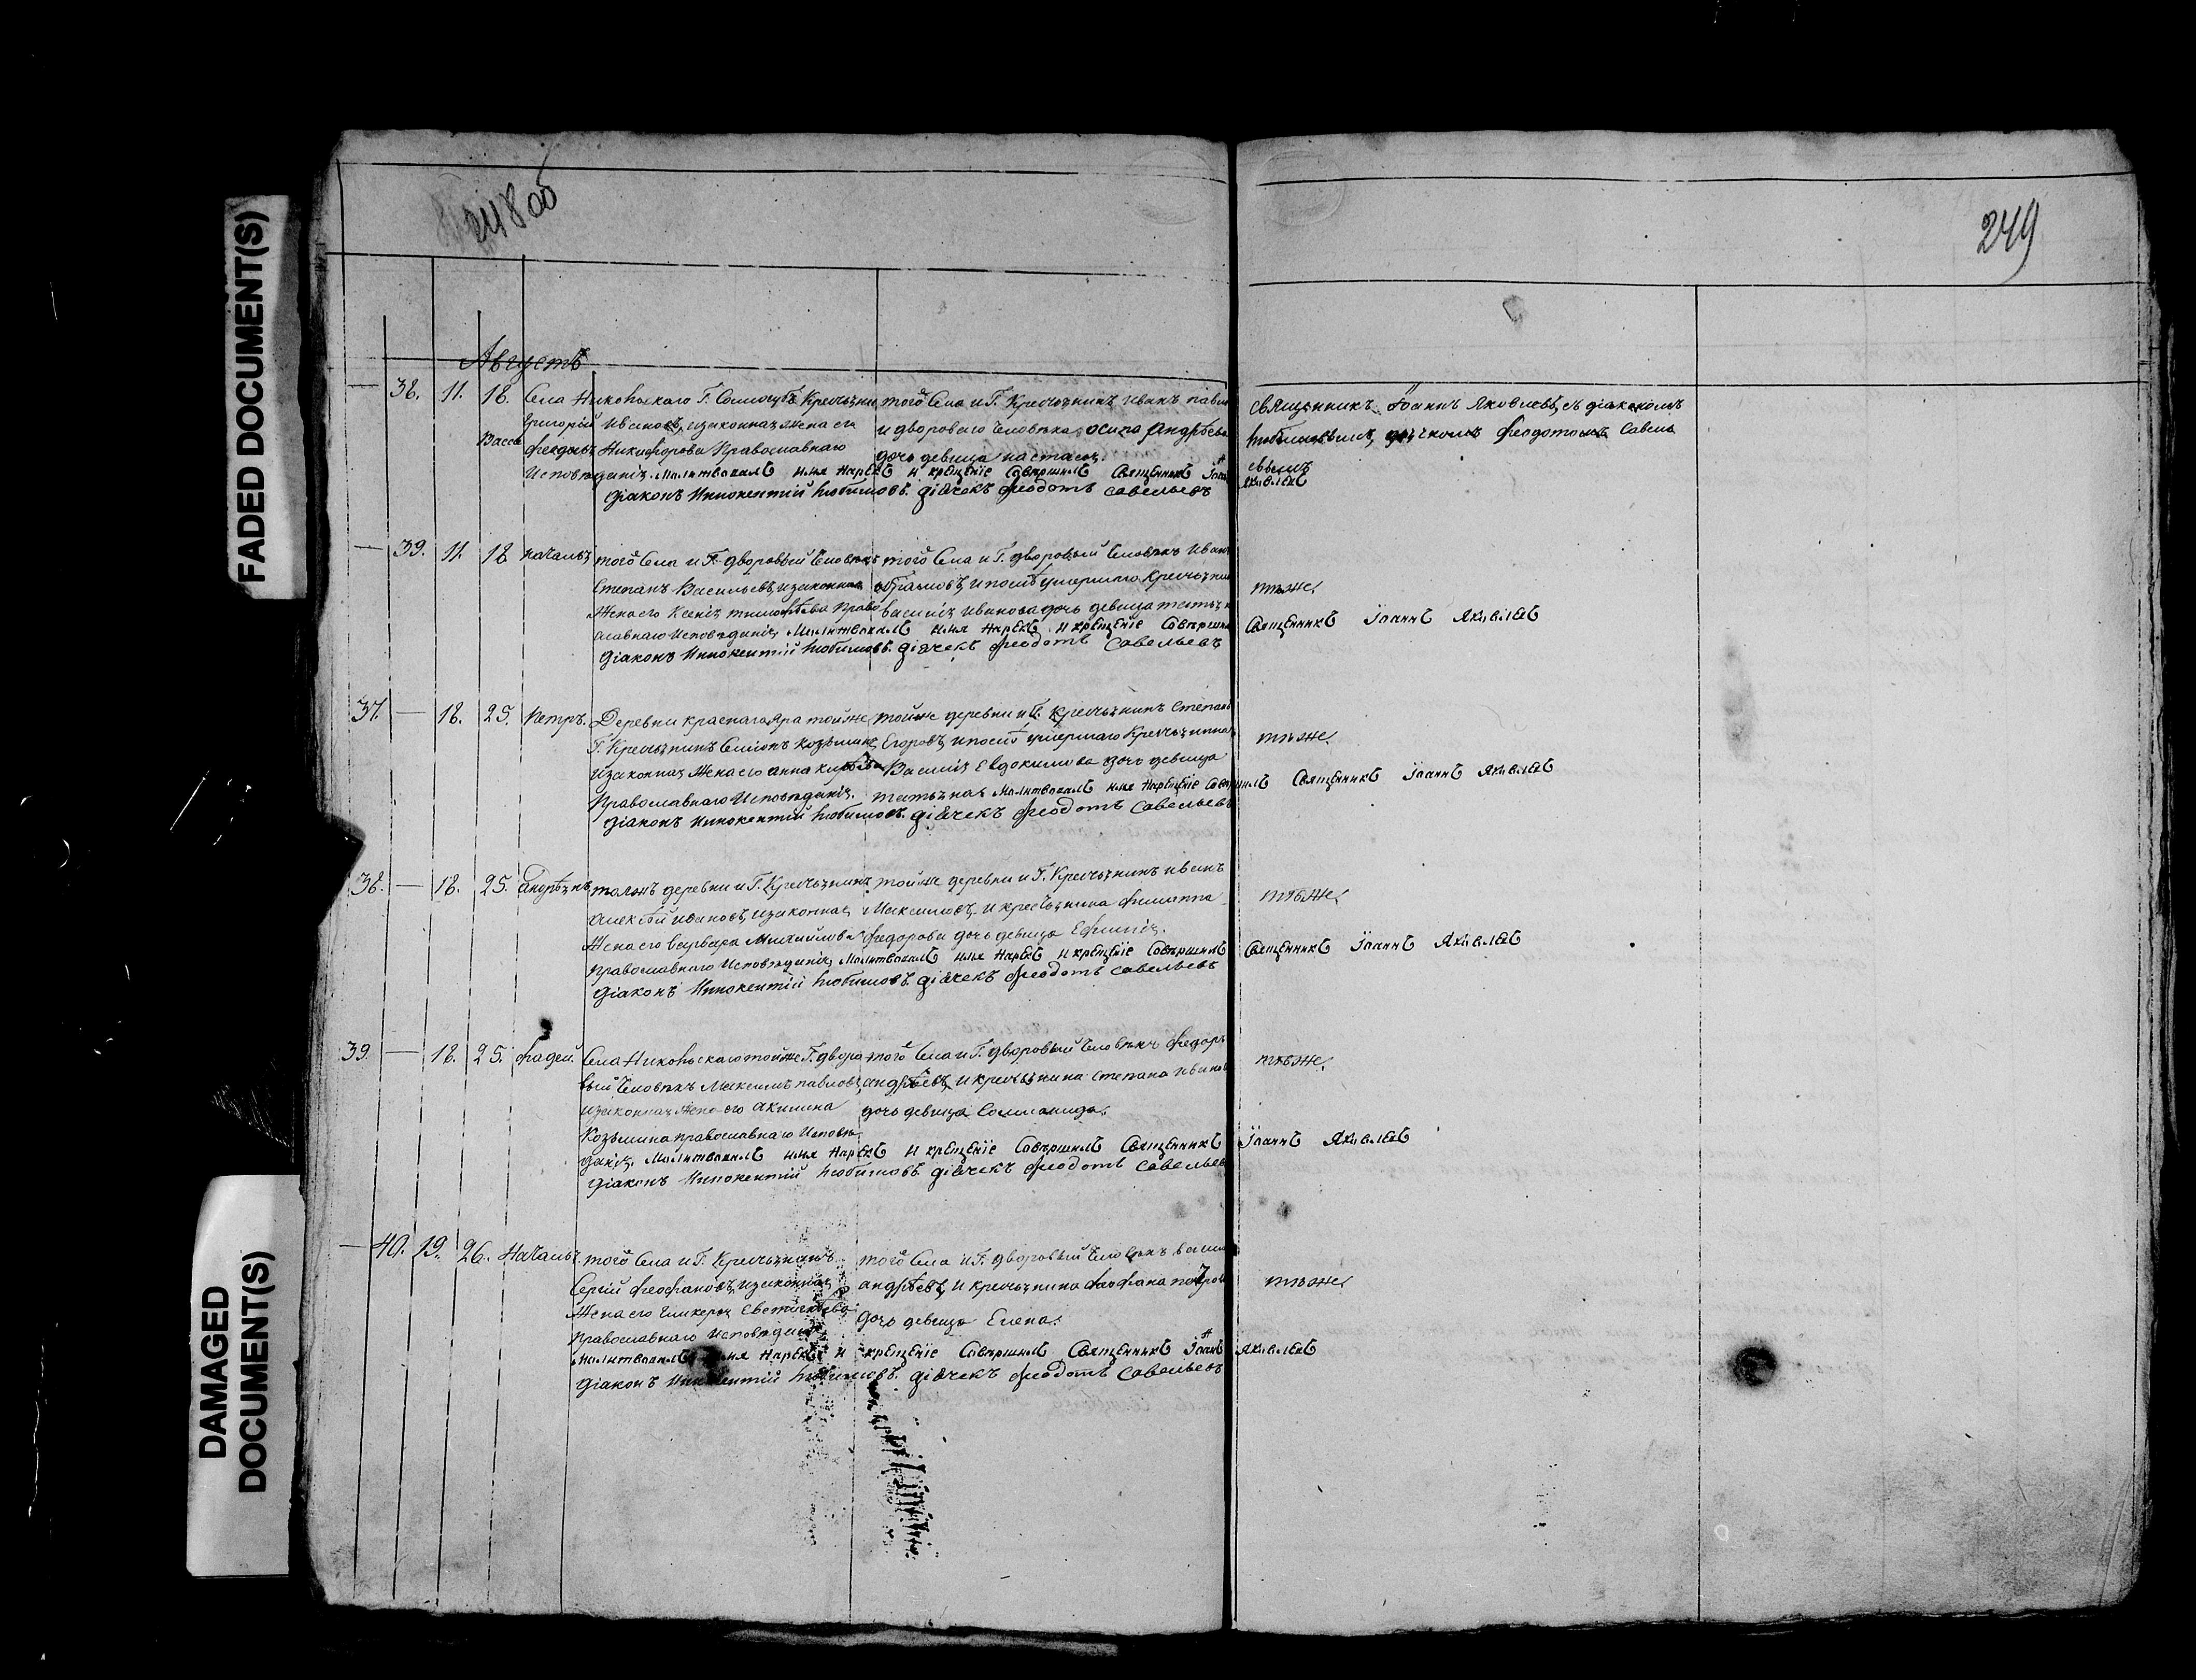 FADED DOCUMENT(S)
DAMAGED DOCUMENT(S)
248 об
249
Августъ
38. 11. 18. Васса Села Никольскаго Г. Крестьянинъ
Григорій Ивановъ, и законная жена его
Никифорова Православнаго
Исповѣданія. Молитвовалъ имя нарекъ и крещеніе совершилъ Священникъ Іоаннъ Яковлевъ
Діаконъ Иннокентій Любимовъ. Дьячекъ Феодотъ Савельевъ
того села и Г. Крестьянинъ Иванъ
и двороваго человѣка осипа Андрѣева
дочь девица настасья,
священникъ Іоаннъ Яковлевъ, съ діакономъ
Любимовымъ, дьячкомъ Феодотомъ Савель
евымъ
39. 11. 18 Наталья того села и Г. дворовый человѣкъ
Степанъ Васильевъ, и законная
жена его Ксенія тимофѣева право
славнаго Исповѣданія, Молитвовалъ имя нарекъ и крещеніе совершилъ Священникъ Іоаннъ Яковлевъ
Діаконъ Иннокентій Любимовъ. Дьячекъ Феодотъ Савельевъ
того села и Г. дворовый человѣкъ Иванъ
и послѣ умершаго крестьянина
василія иванова дочь девица татьяна
тѣже,
37. — 18. 25. Петръ. Деревни краснаго Яра той же
Г. Крестьянинъ Семіонъ Козьминъ,
и законная жена его анна
Православнаго Исповѣданія.
той же деревни и Г. крестьянинъ Степанъ
Егоровъ, и послѣ умершаго Крестьянина
Василія Евдокимова дочь девица
татьяна, Молитвовалъ имя нарекъ и крещеніе совершилъ Священникъ Іоаннъ Яковлевъ
Діаконъ Иннокентій Любимовъ. Дьячекъ Феодотъ Савельевъ
тѣже,
38. — 18. 25. Андреянъ той же деревни и Г. Крестьянинъ
алексѣй ивановъ, и законная
жена его варвара Михайлова
православнаго Исповѣданія, Молитвовалъ имя нарекъ и крещеніе совершилъ Священникъ Іоаннъ Яковлевъ
Діаконъ Иннокентій Любимовъ. Дьячекъ Феодотъ Савельевъ
той же деревни и Г. Крестьянинъ иванъ
Максимовъ, и крестьянина филиппа
федорова дочь девица Ефимія,
тѣже,
39. — 18. 25. Фадей. Села Никольскаго той же Г. дворо
вый человѣкъ Максимъ павловъ,
и законная жена его акилина
Козьмина православнаго Исповѣ
данія, Молитвовалъ имя нарекъ и крещеніе совершилъ Священникъ Іоаннъ Яковлевъ
Діаконъ Иннокентій Любимовъ. Дьячекъ Феодотъ Савельевъ
того села и Г. дворовый человѣкъ федоръ
андрѣевъ, и крестьянина степана иванова
дочь девица Соломанида,
тѣже,
— 40. 19. 26. Наталья того села и Г. Крестьянинъ
Сергій феофановъ, и законная
жена его гликерья
православнаго исповѣданія
Молитвовалъ имя нарекъ и крещеніе совершилъ Священникъ Іоаннъ Яковлевъ
Діаконъ Иннокентій Любимовъ. Дьячекъ Феодотъ Савельевъ
того села и Г. дворовый человѣкъ
андрѣевъ, и крестьянина феофана
дочь девица Елена.
тѣже,